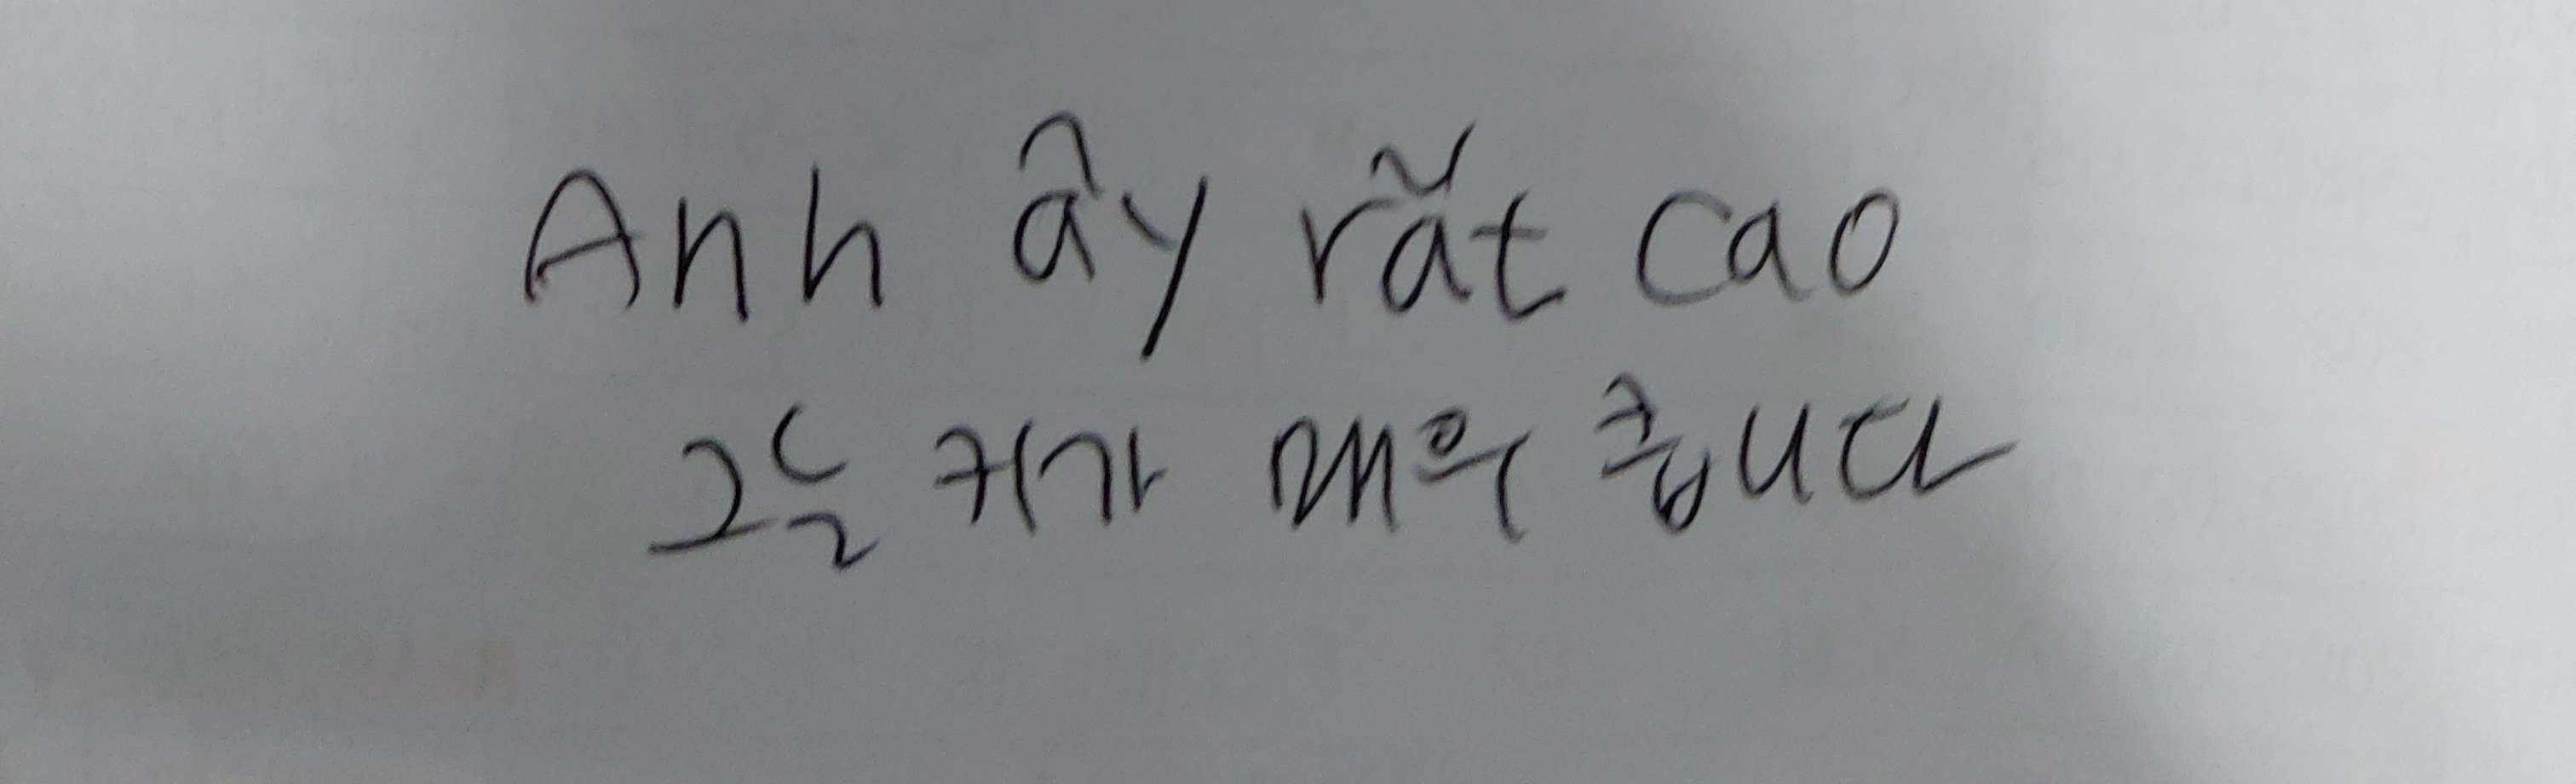 Anh ây rắt cao
그는 키가 매우 큽니다